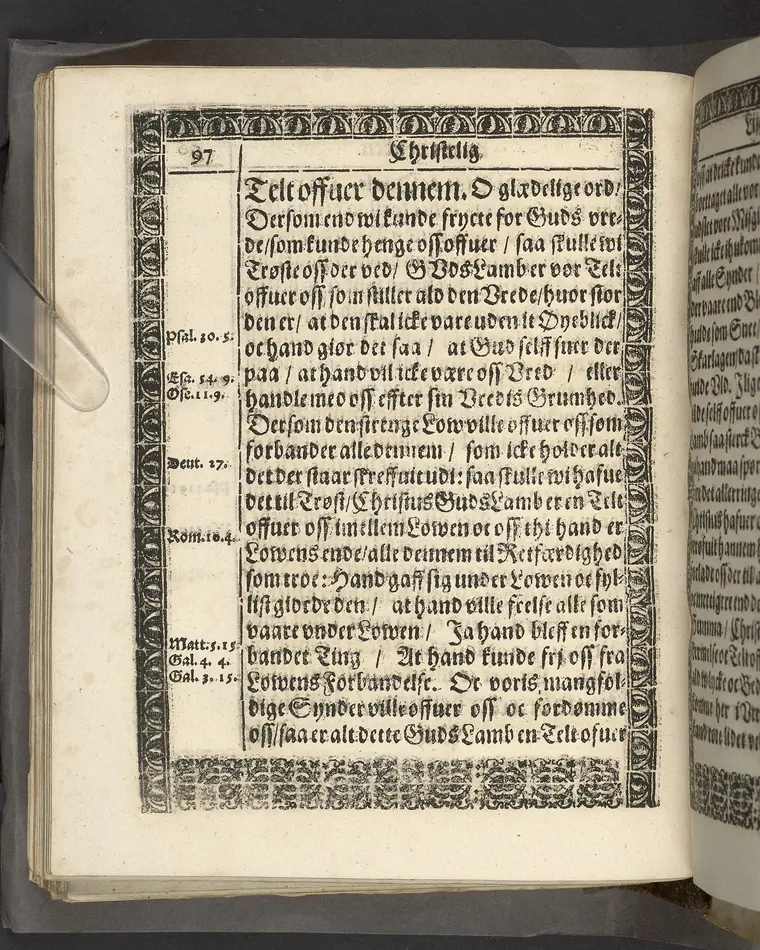 97
Christelig
Telt offuer dennem. O glædelige ord/
Dersom end wi kunde frycte for Guds vre-
de/som kunde henge oss offuer / saa skulle wi
Trøste oss der ved/ GVds Lamb er vor Telt
offuer oss som stiller ald den Vrede/huor stor
den er/ at den skal icke vare uden it Øyeblick/
oc hand giør det saa / at Gud self suer der
paa / at hand vil icke være oss Vred / eller
handle med oss effter sin Vredis Grumhed.
Dersom den strenge Low ville offuer oss som
forbander alle dennem / som icke holder alt
det der staar skreffuit udi: saa skulle wi hafue
det til Trøst/Christus Guds Lamb er en Telt
offuer oss imellem Lowen oc oss thi hand er
Lowens ende/alle dennem til Retfærdighed
som troe: Hand gaff sig under Lowen oc fyl-
list giorde den / at hand ville frelse alle som
vaare vnder Lowen / Ja hand bleff en for-
bandet Ting / At hand kunde frj oss fra
Lowens Forbandelse. Oc voris mangfol-
dige Synder ville offuer oss oc fordømme
oss/saa er alt dette Guds Lamb en Telt ofuer
Psal. 30. 5.
Esa. 54. 9.
Ose. 11. 9.
Deut. 27.
Rom. 10. 4.
Matt. 5. 15
Gal. 4. 4.
Gal. 3. 15.